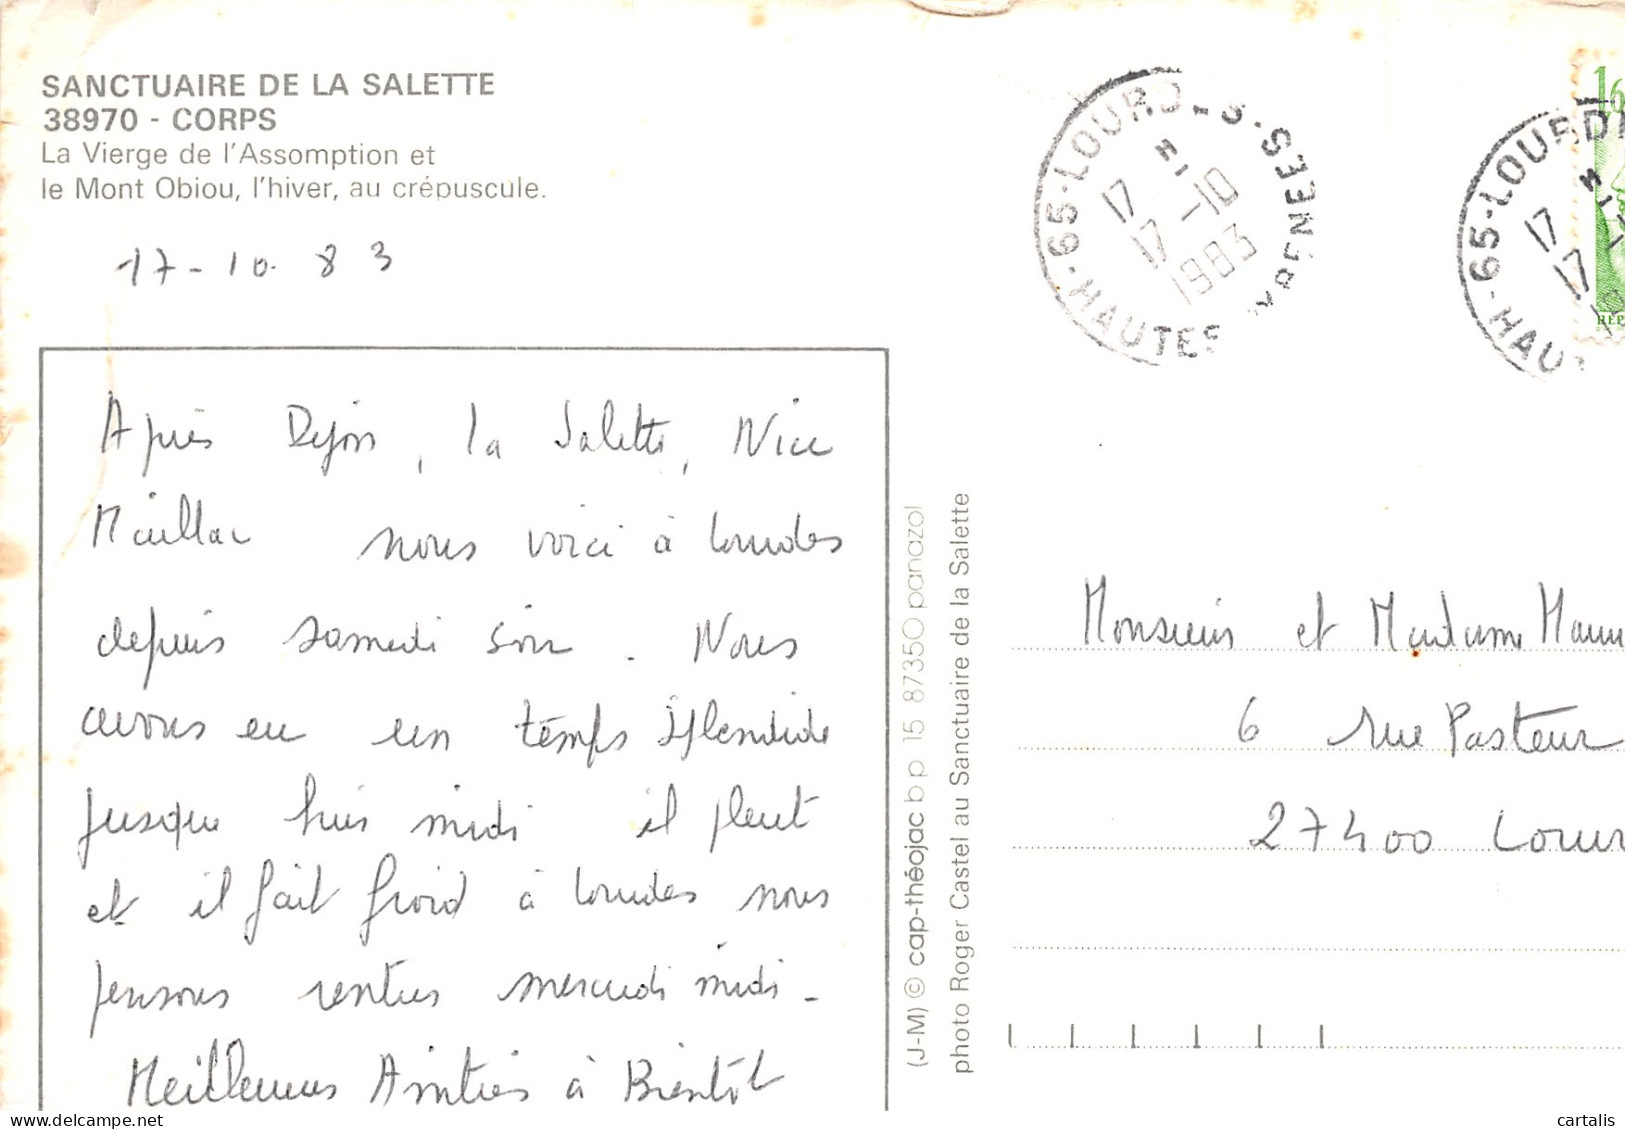 SANCTUAIRE DE LA SALETTE
38970 - CORPS
La Vierge de l'Assomption et
le Mont Obiou, l'hiver, au crépuscule.
17-10. 83
Après Dijon, la Salette, Nice
Maillac nous voici à Lourdes
depuis samedi soir. Nous
avons eu un temps splendide
jusque hier midi il pleut
et il fait froid à Lourdes nous
pensons rentrer mercredi midi -
Meilleures Amitiés à Bientôt
(J-M) © cap-théojac b p 15 87350 panazol
photo Roger Castel au Sanctuaire de la Salette
65-LOURDES
17 H
17-10
1983
HAUTES PYRENEES
65-LOURD
17 H
17
19
HAUT
1,6
RÉP
Monsieur et Madame
6 rue Pasteur
27400 Louv
cartalis